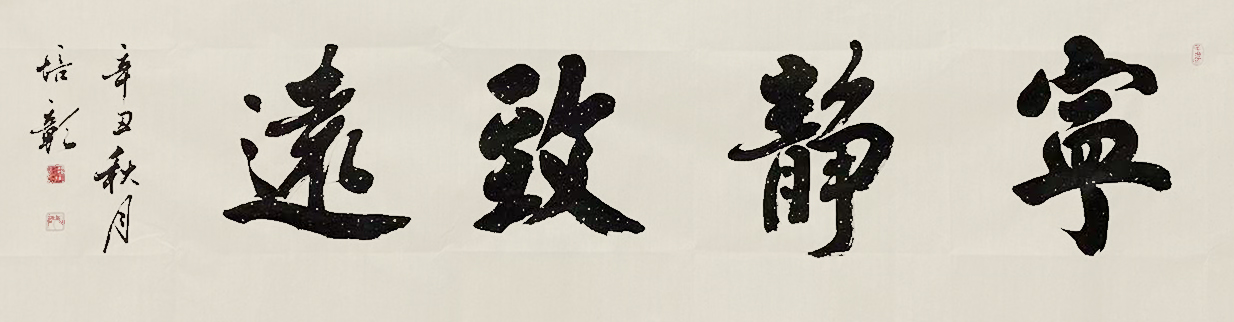 寧靜致遠
辛丑秋月
培彰